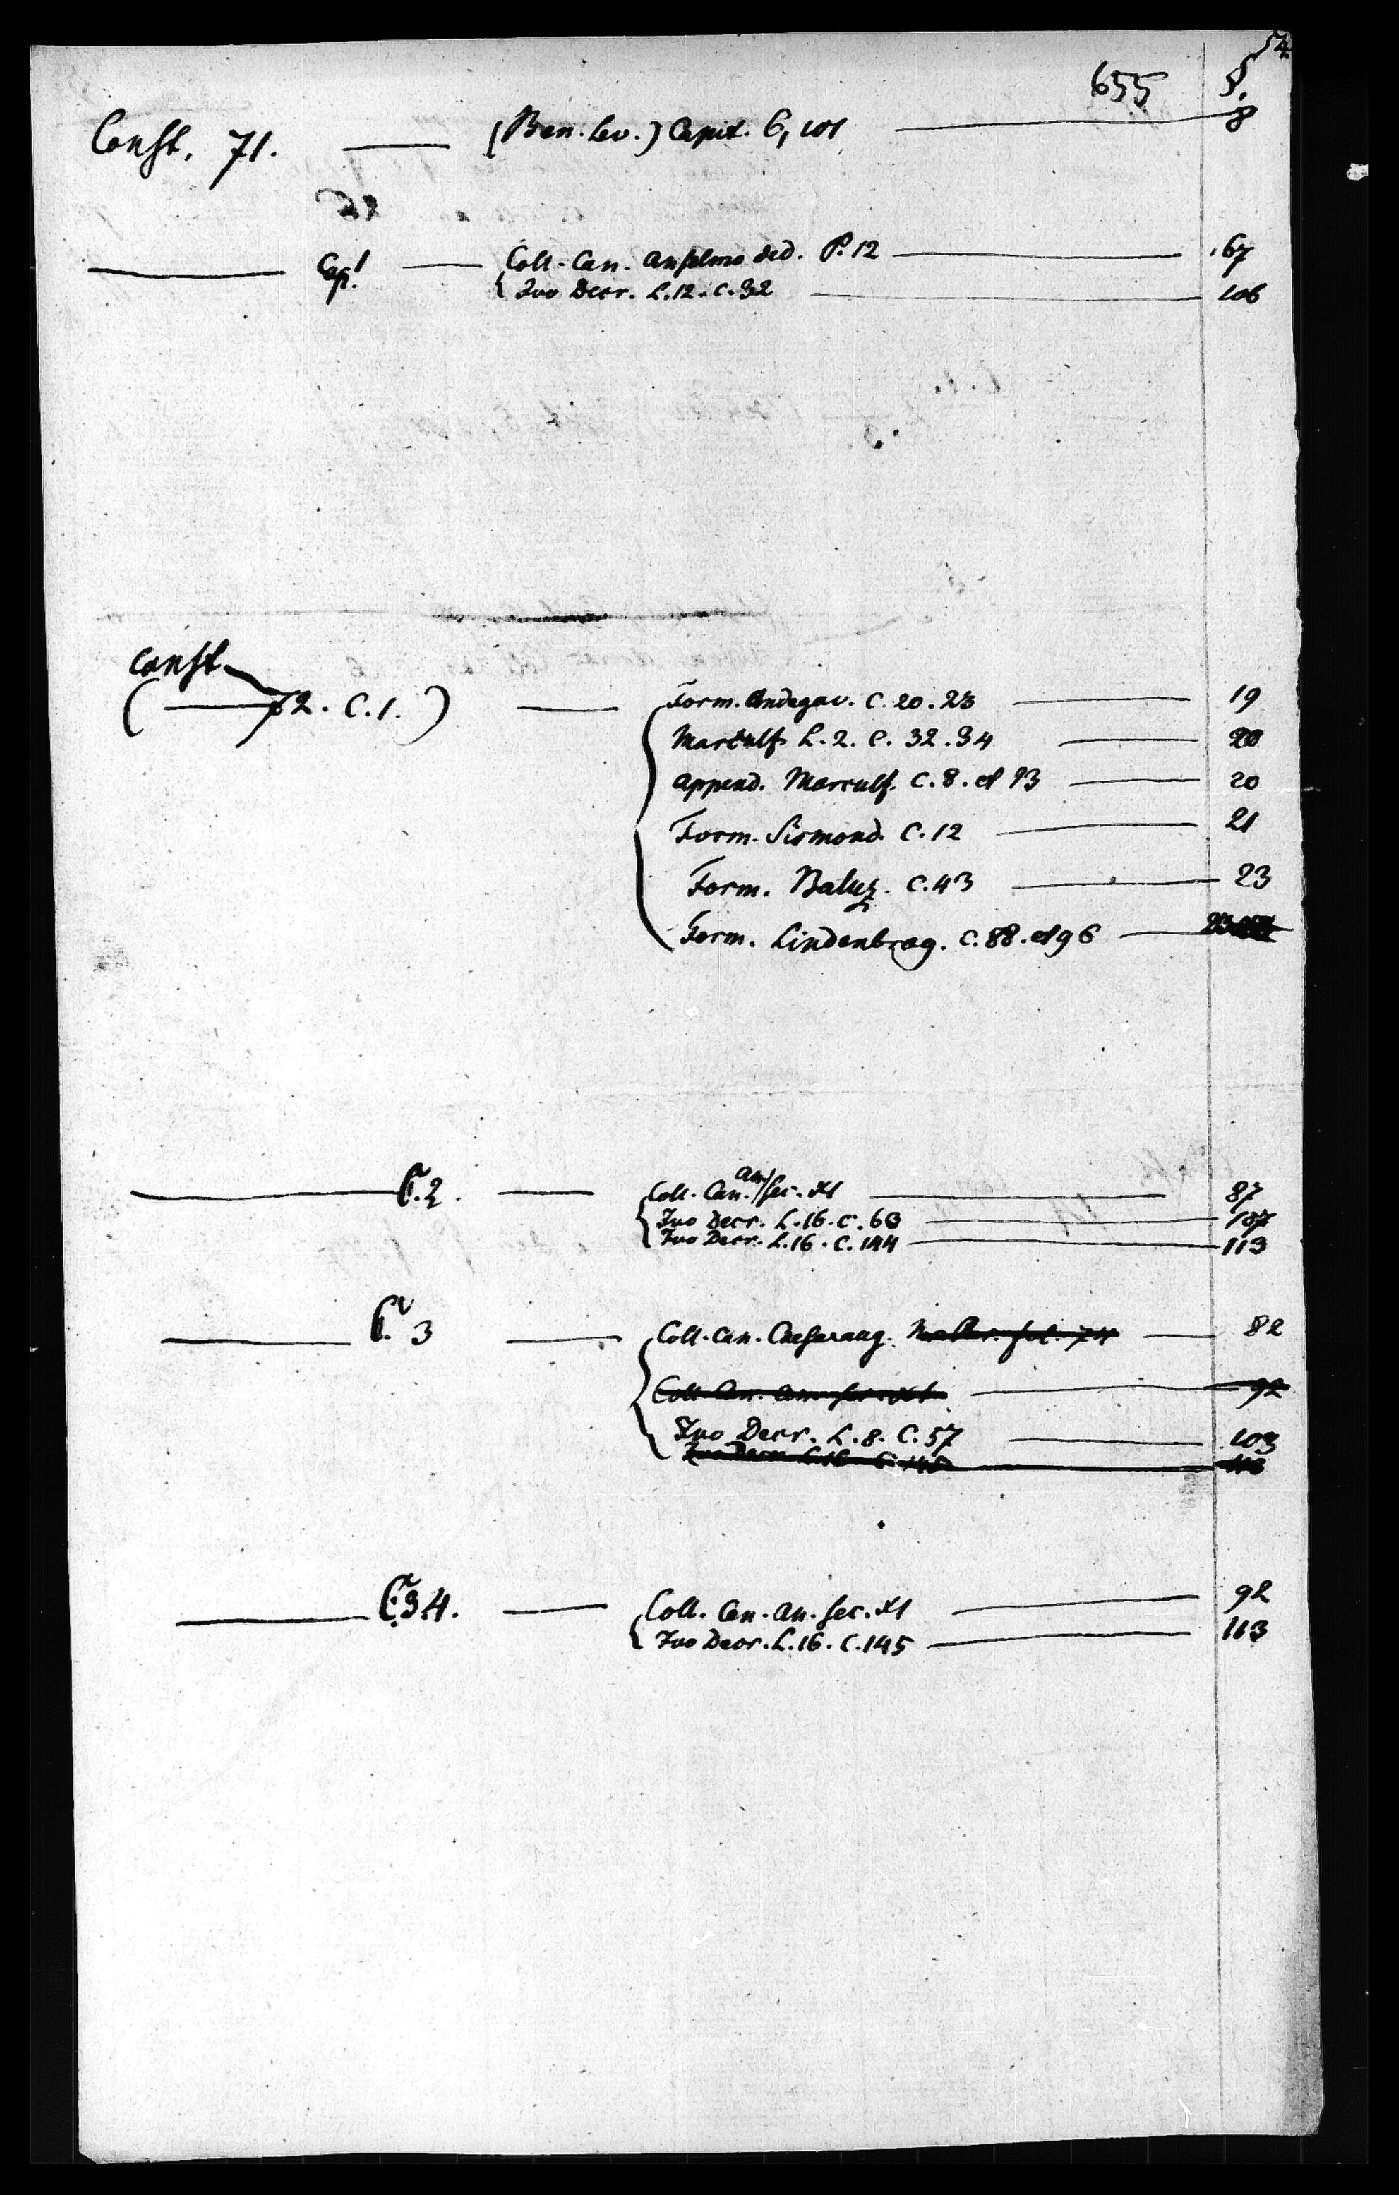 54
655 §.
Const. 71. — (Ben. Lev.) Capit. 6, 101 — 8
— Cap. 1 — Coll. Can. Anselmo ded. P. 12 — 167
Ivo Decr. L. 12. c. 32 — 106
Const.
( — 72. C. 1. ) — Form. Andegav. C. 20. 23 — 19
Marculf L. 2. C. 32. 34 — 20
Append. Marculf. C. 8. et 13 — 20
Form. Sirmond. C. 12 — 21
Form. Baluz. C. 43 — 23
Form. Lindenbrog. C. 88. et 96 —
— C. 2. — Coll. Can. an/sec. XI — 87
Ivo Decr. L. 16. C. 63 — 107
Ivo Decr. L. 16. C. 144 — 113
— C. 3 — Coll. Can. Caesaraug. — 82
Coll. Can. an. sec. XI — 92
Ivo Decr. L. 8. C. 57 — 103
Ivo Decr. L. 16. C. 145 — 113
— C. 3.4. — Coll. Can. an. sec. XI — 92
Ivo Decr. L. 16. C. 145 — 113